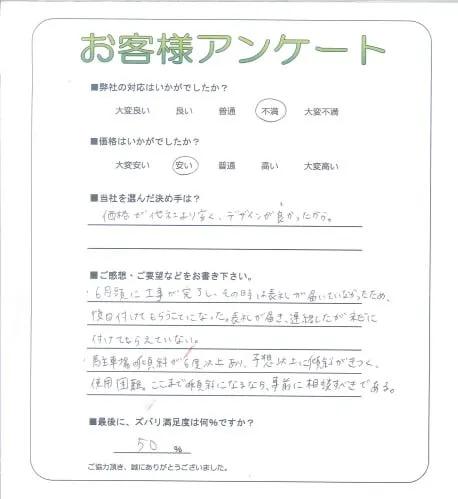 お客様アンケート
■弊社の対応はいかがでしたか？
大変良い 良い 普通 不満 大変不満
■価格はいかがでしたか？
大変安い 安い 普通 高い 大変高い
■当社を選んだ決め手は？
価格が他社より安く、デザインが良かったから。
■ご感想・ご要望などをお書き下さい。
・6月頭に工事が完了し、その時は表札が届いていなかったため、
後日付けてもらうことになった。表札が届き、連絡したが未だに
付けてもらえていない。
・駐車場の傾斜が6度以上あり、予想以上に傾斜がきつく、
使用困難。ここまで傾斜になるなら、事前に相談すべきである。
■最後に、ズバリ満足度は何％ですか？
50 %
ご協力頂き、誠にありがとうございました。